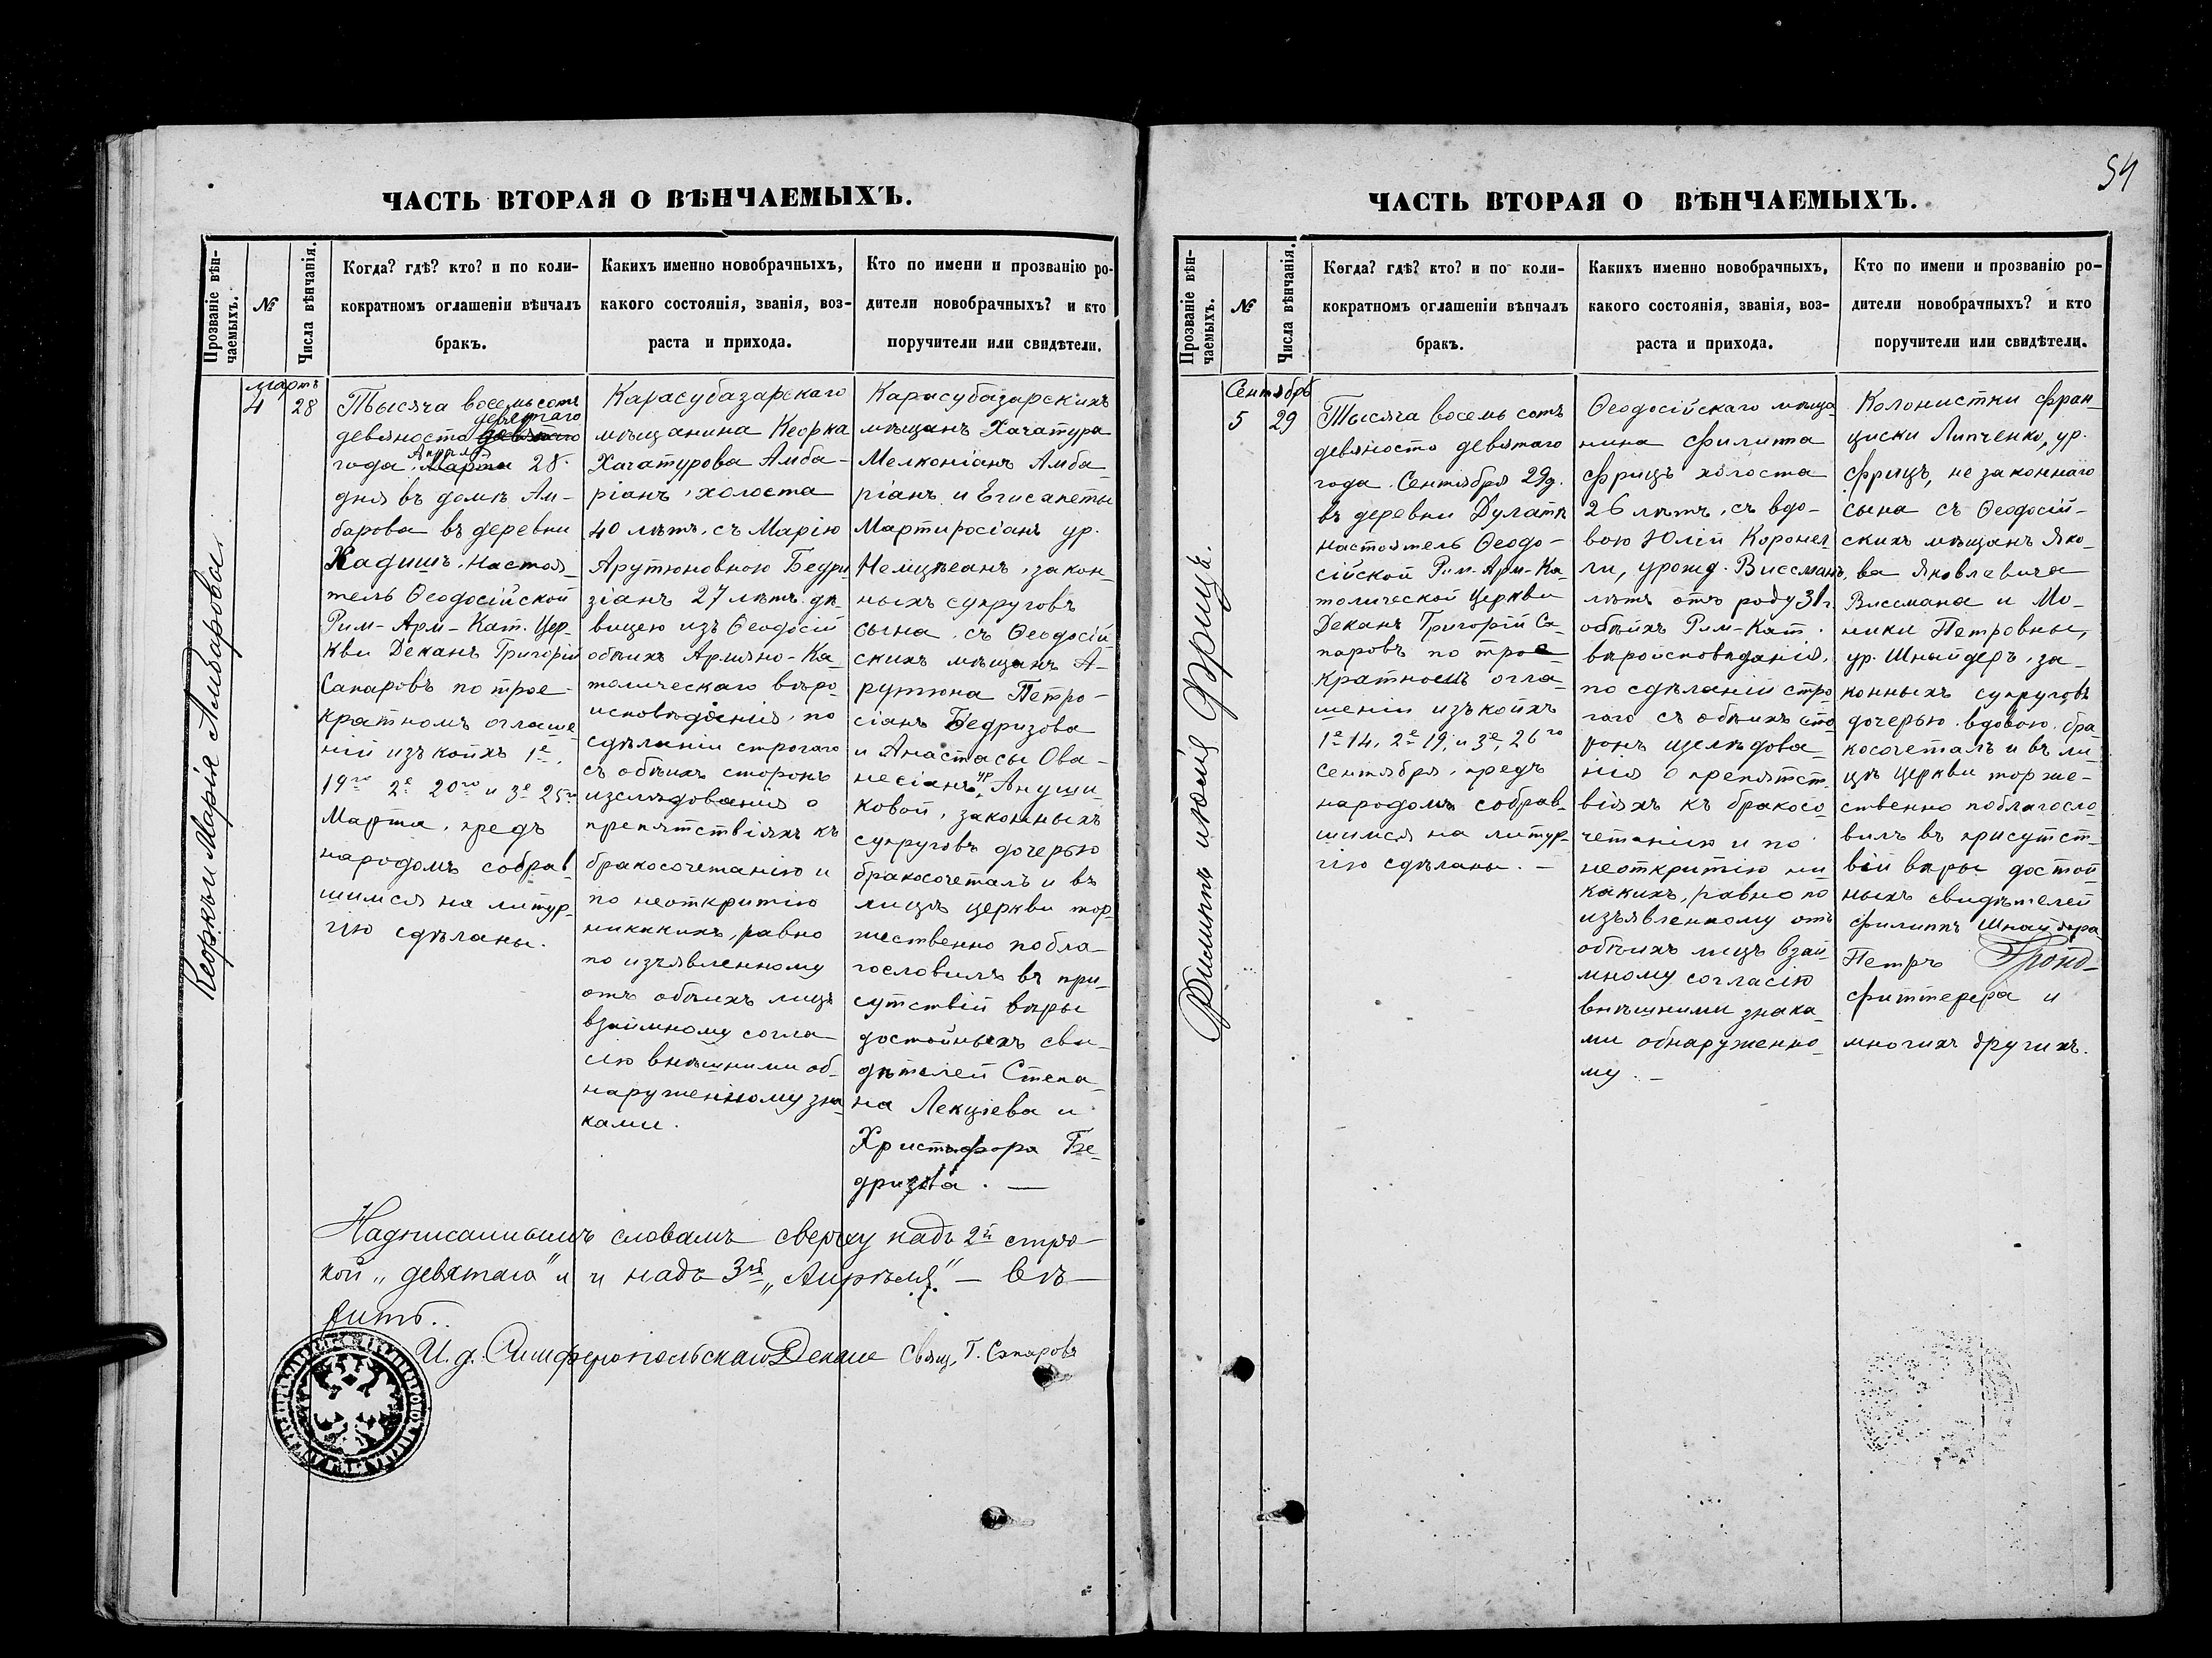 ЧАСТЬ ВТОРАЯ О ВѢНЧАЕМЫХЪ.
Прозваніе вѣн-
чаемыхъ.
№
Числа вѣнчанія.
Когда? гдѣ? кто? и по коли-
кократномъ оглашеніи вѣнчалъ
бракъ.
Какихъ именно новобрачныхъ,
какого состоянія, званія, воз-
раста и прихода.
Кто по имени и прозванію ро-
дители новобрачныхъ? и кто
поручители или свидѣтели.
Кеоркъ и Марія Амбаровы.
Мартъ
4
28
Тысяча восемьсотъ
девятаго
девяноста девятаго
Апрѣля
года, Марта 28.
дня въ домѣ Ам-
барова въ деревни
Кадишъ, Настоя-
тель Ѳеодосійской
Рим-Арм-Кат. Цер-
кви Деканъ Григорій
Сапаровъ по трое-
кратномъ оглаше
ній изъ коихъ 1е,
19го 2е 20го и 3е 25го
Марта, предъ
народомъ собрав-
шимся на литур-
гію сдѣланы.
Карасубазарскаго
мѣщанина Кеорка
Хачатурова Амба-
ріанъ, холоста
40 лѣтъ, съ Марію
Арутюновною Бедри
зіанъ 27 лѣтъ дѣ-
вицею изъ Ѳеодосій
обѣихъ Армяно-Ка-
толическаго вѣро-
исповѣданія, по
сдѣланіи строгаго
съ обѣихъ сторонъ
изслѣдованія о
препятствіяхъ къ
бракосочетанію и
по неоткритію
никакихъ, равно
по изъявленному
отъ обѣихъ лицъ
взаимному согла
сію внѣшними об-
наруженному зна-
ками.
Карасубазарскихъ
мѣщанъ Хачатура
Мелконіанъ Амба
ріанъ и Егисапеты
Мартиросіанъ ур.
Немцѣеанъ, закон-
ныхъ супруговъ
сына, съ Ѳеодосій
скихъ мѣщанъ А-
рутюна Петро-
сіанъ Бедризова
и Анастасы Ова-
несіанъ, ур. Ануши-
ковой, законныхъ
супруговъ дочерью
бракосочеталъ и въ
лицѣ церкви тор-
жественно побла-
гословилъ въ при-
сутствій вѣры
достойныхъ сви-
дѣтелей Степа-
на Лекціева и
Христофора Бе-
дризова. —
Надписаннымъ словамъ сверху надъ 2й стро-
кой „девятаго" и надъ 3ей „Апрѣля" — вѣ-
рить..
И. д. Симферопольскаго Декана Свящ. Г. Сапаровъ
54
ЧАСТЬ ВТОРАЯ О ВѢНЧАЕМЫХЪ.
Прозваніе вѣн-
чаемыхъ.
№
Числа вѣнчанія.
Когда? гдѣ? кто? и по коли-
кократномъ оглашеніи вѣнчалъ
бракъ.
Какихъ именно новобрачныхъ,
какого состоянія, званія, воз-
раста и прихода.
Кто по имени и прозванію ро-
дители новобрачныхъ? и кто
поручители или свидѣтели.
Филиппъ и Юлія Фрицъ.
Сентябрь
5
29
Тысяча восемь сотъ
девяносто девятаго
года. Сентября 29д.
въ деревни Дулатъ
настоятель Ѳеодо-
сійской Рим-Арм-Ка-
толической Церкви
Деканъ Григорій Са-
паровъ по трое-
кратномъ огла-
шеніи изъ коихъ
1е 14, 2е 19, и 3е, 26го
Сентября, предъ
народомъ собрав-
шимся на литур-
гію сдѣланы. —
Ѳеодосійскаго мѣща
нина Филиппа
Фрицъ холоста
26 лѣтъ, съ вдо-
вою Юлій Коронел-
ли, урожд. Виссманъ,
лѣтъ отъ роду 31г.
обѣихъ Рим-Кат.
вѣройсповѣданія,
по сдѣланій стро
гаго съ обѣихъ сто
ронъ изслѣдова-
нія о препятст-
віяхъ къ бракосо-
четанію и по
неоткритію ни-
какихъ, равно по
изъявленному отъ
обѣихъ лицъ взай
мному согласію
внѣшними знака-
ми обнаруженно-
му. —
Колонистки Фран-
циски Липченко, ур.
Фрицъ, не законнаго
сына съ Ѳеодосій-
скихъ мѣщанъ Яко-
ва Яковлевича
Виссмана и Мо-
ники Петровны,
ур. Шнайдеръ, за-
конныхъ супруговъ
дочерью вдовою, бра
косочеталъ и въ ли-
цѣ Церкви торже-
ственно поблагосло
вилъ въ присутст-
вій вѣры достой
ныхъ свидѣтелей
Филиппъ Шнайдера
Петръ
Фиттерера и
многихъ другихъ.